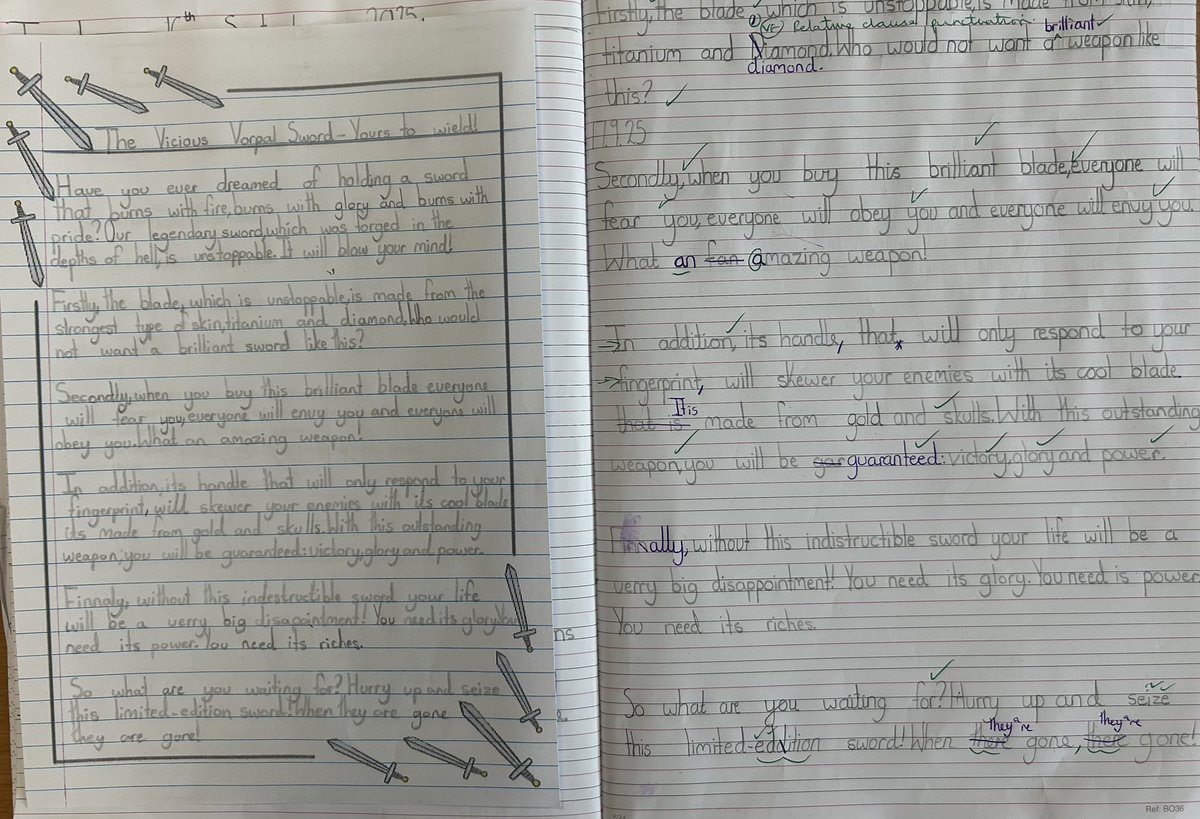 2025.
The Vicious Vorpal Sword-Yours to wield!
Have you ever dreamed of holding a sword
that burns with fire, burns with glory and burns with
pride? Our legendary sword, which was forged in the
depths of hell, is unstoppable. It will blow your mind!
Firstly, the blade, which is unstoppable, is made from the
strongest type of skin, titanium and diamond. Who would
not want a brilliant sword like this?
Secondly, when you buy this brilliant blade everyone
will fear you, everyone will envy you and everyone will
obey you. What an amazing weapon!
In addition, its handle that will only respond to your
fingerprint, will skewer your enemies with its cool blade
its made from gold and skulls. With this outstanding
weapon, you will be guaranteed: victory, glory and power.
Finnaly, without this indestructible sword your life
will be a verry big disapointment! You need its glory. You
need its power. You need its riches.
So what are you waiting for? Hurry up and seize
this limited-edition sword! When they are gone
they are gone!
ns
&
Firstly, the blade, which is unstoppable, is made from skin,
Relative clause punctuation. brilliant
titanium and Diamond. Who would not want a weapon like
diamond.
this?
17.9.25
Secondly, when you buy this brilliant blade, everyone will
fear you, everyone will obey you and everyone will envy you.
What an fan amazing weapon!
In addition, its handle, that will only respond to your
fingerprint, will skewer your enemies with its cool blade
It is
that is made from gold and skulls. With this outstanding
weapon, you will be gar guaranteed: victory, glory and power.
Finally, without this indistructible sword your life will be a
verry big disappointment! You need its glory. You need is power
You need its riches.
So what are you waiting for? Hurry up and seize
they're they're
this limited-edition sword! When there gone, there gone!
Ref: BO36